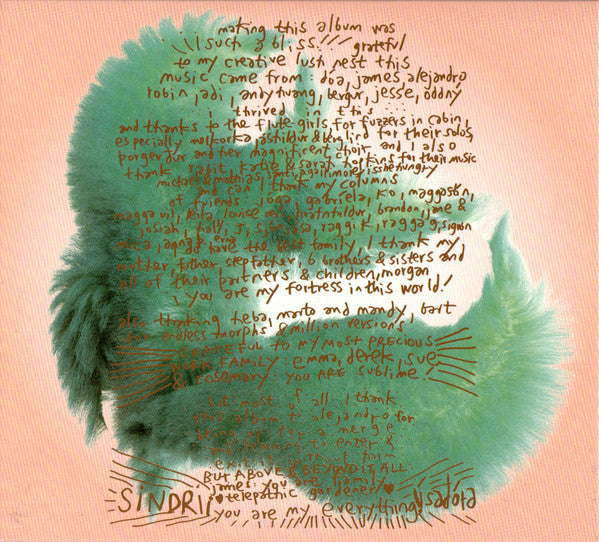 making this album was
such a bliss. grateful
to my creative lust nest this
music came from: dóa, james, alejandro
robin, adi, andy huang, bergur, jesse, oddny
i thrived in this
and thanks to the flute girls for fuzzers in cabin,
especially melkorka, ásthildur & berglind for their solos,
þorgerdur and her magnificent choir and i also
thank rabit, katie & sarah hopkins for their music
michael
and can i thank my columns
of friends: jóga, gabríela, k.o, maggastín,
magga vil, leila, louise m, hrafnhildur, brandon, jame &
josiah, hall, j, s, raggi k, ragga g, sigrún
mica, and have the best family, i thank my
mother, father, stepfather, 6 brothers & sisters and
all of their partners & children, morgan
you are my fortress in this world!
also thanking heba, marta and mandy, bart
from endless morphs & million versions
GRATEFUL TO MY MOST PRECIOUS
WORK FAMILY: emma, derek, sue
& ROSEMARY: YOU ARE SUBLIME!
but most of all i thank
this album to alejandro for
being up for a merge
to enter &
BUT ABOVE & BEYOND IT ALL
james: you are family
telepathic gardener
SINDRI i
you are my everything